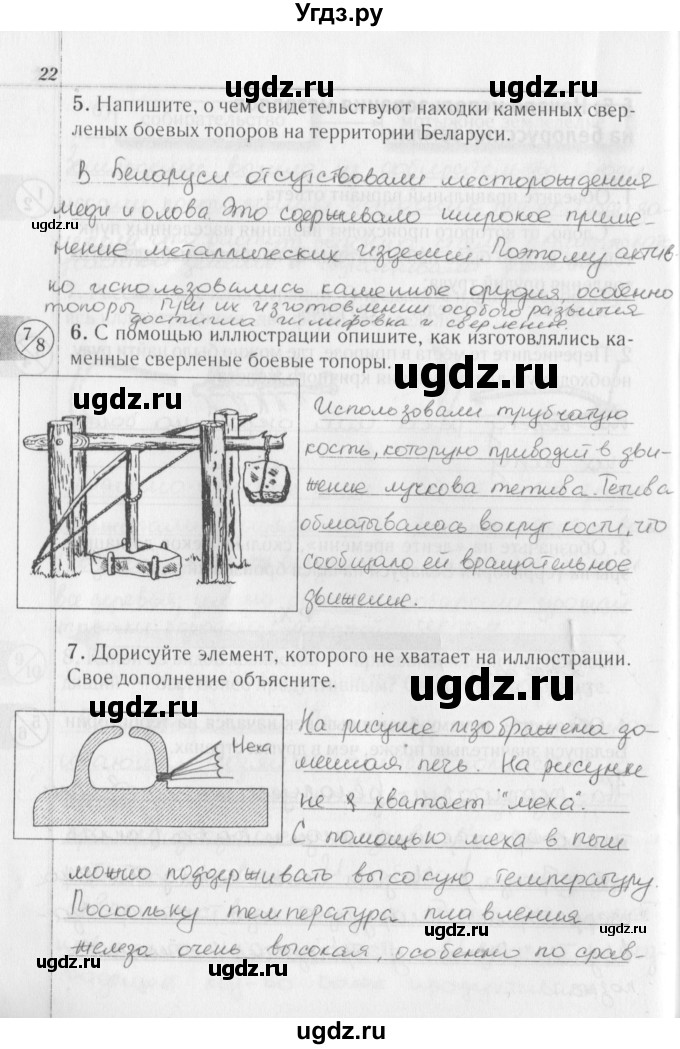 Угдз.ру
22
ugdz.ru ugdz.ru
5. Напишите, о чем свидетельствуют находки каменных свер-
леных боевых топоров на территории Беларуси.
В Беларуси отсутствовали месторождения
меди и олова. Это сдерживало широкое приме-
нение металлических изделий. Поэтому актив-
но использовались каменные орудия, особенно
топоры. При их изготовлении особого развития
достигла шлифовка и сверление.
7/8
6. С помощью иллюстрации опишите, как изготовлялись ка-
менные сверленые боевые топоры.
ugdz.ru
ugdz.ru
Использовали трубчатую
кость, которую приводит в дви-
жение лучкова тетива. Тетива
обматывалась вокруг кости, что
сообщало ей вращательное
движение.
ugdz.ru
7. Дорисуйте элемент, которого не хватает на иллюстрации.
Свое дополнение объясните.
ugdz.ru
ugdz.ru
Меха
На рисунке изображена до-
менная печь. На рисунке
не хватает "меха".
С помощью меха в печи
ugdz.ru
можно поддерживать высокую температуру.
Поскольку температура плавления
железа очень высокая, особенно по срав-
ugdz.ru
ugdz.ru
ugdz.ru